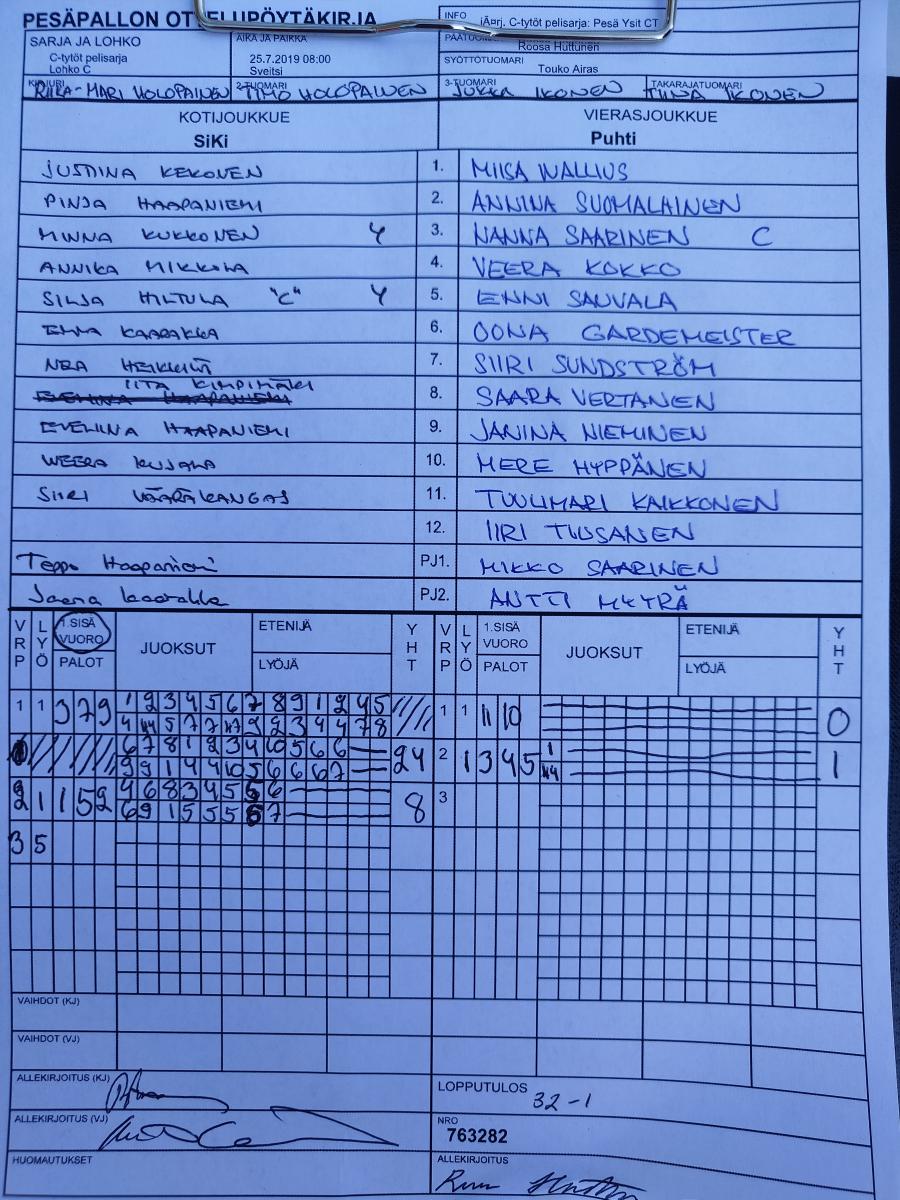 PESÄPALLON OTTELUPÖYTÄKIRJA
INFO
iÄ¤rj. C-tytöt pelisarja: Pesä Ysit CT
SARJA JA LOHKO
C-tytöt pelisarja
Lohko C
AIKA JA PAIKKA
25.7.2019 08:00
Sveitsi
PÄÄTUOMARI
Roosa Huttunen
SYÖTTÖTUOMARI
Touko Airas
KIRJURI
RIIKA-MARI HOLOPAINEN
2-TUOMARI
TIMO HOLOPAINEN
3-TUOMARI
JUKKA IKONEN
TAKARAJATUOMARI
TIINA IKONEN
KOTIJOUKKUE
SiKi
VIERASJOUKKUE
Puhti
JUSTIINA KEKONEN 1. MIISA WALLIUS
PINJA HAAPANIEMI 2. ANNINA SUOMALAINEN
MINNA KUKKONEN Y 3. NANNA SAARINEN C
ANNIKA MIKKOLA 4. VEERA KOKKO
SILJA HILTULA "C" Y 5. ENNI SAUVALA
KAARAKKA 6. OONA GARDEMEISTER
NEA 7. SIIRI SUNDSTRÖM
IITA KIMPIMÄKI
EVELIINA HAAPANIEMI 8. SAARA VERTANEN
EVELIINA HAAPANIEMI 9. JANINA NIEMINEN
WEERA KUJALA 10. MERE HYPPÄNEN
SIIRI VÄÄRÄKANGAS 11. TUULIMARI KAIKKONEN
12. IIRI TUOSANEN
Teppo Haapaniemi PJ1. MIKKO SAARINEN
Jaana PJ2. ANTTI MYYRÄ
VRP LYÖ 1.SISÄ VUORO PALOT JUOKSUT ETENIJÄ LYÖJÄ YHT VRP LYÖ 1.SISÄ VUORO PALOT JUOKSUT ETENIJÄ LYÖJÄ YHT
1 1 3 7 9 1 2 3 4 5 6 7 8 9 1 2 4 5 1 1 11 10 0
24 2 1 3 4 5 1 1
2 1 1 5 2 8 3
3 5
VAIHDOT (KJ)
VAIHDOT (VJ)
ALLEKIRJOITUS (KJ)
LOPPUTULOS
32-1
ALLEKIRJOITUS (VJ)
NRO
763282
HUOMAUTUKSET
ALLEKIRJOITUS